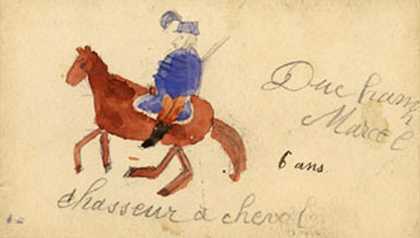 Duchamp
Marcel
6 ans
chasseur à cheval